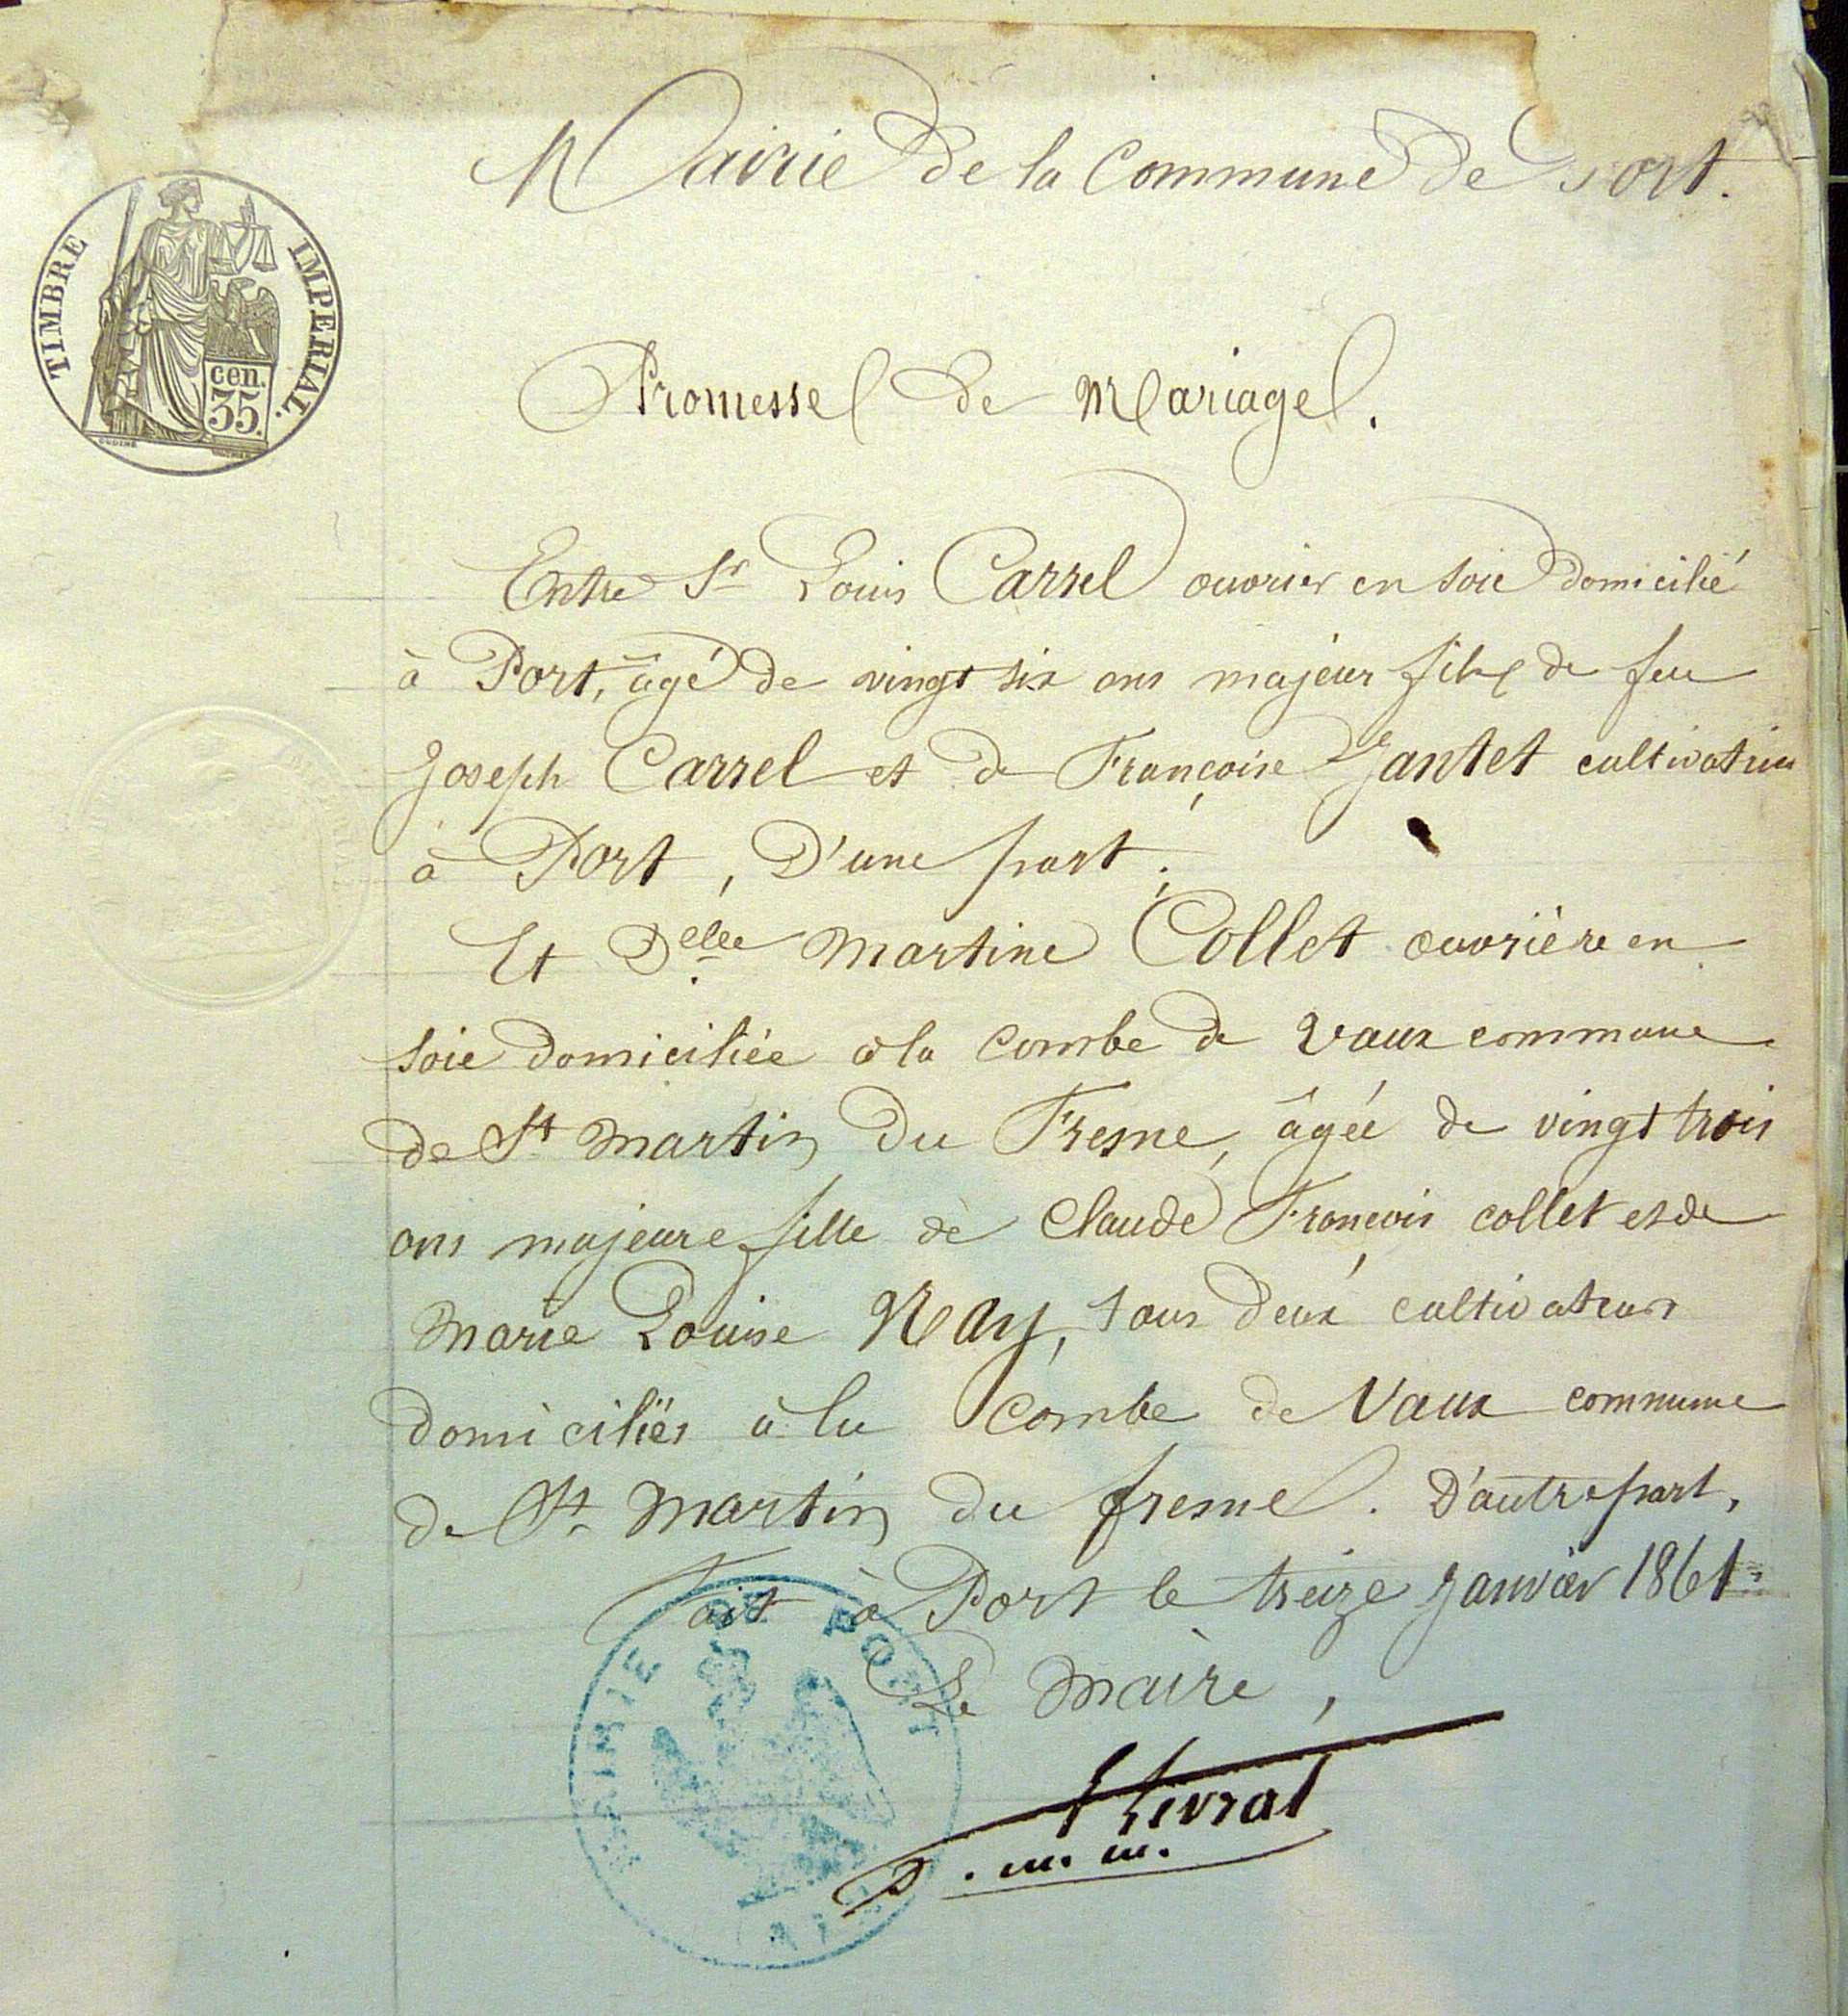 Mairie de la Commune de Port.
TIMBRE IMPERIAL.
cen.
35.
Promesse de Mariage.
Entre Sr Louis Carrel ouvrier en soie domicilié
à Port, âgé de vingt six ans majeur fils de feu
Joseph Carrel et de Françoise Jantet cultivatrice
à Port, D'une part;
Et Delle Martine Collet ouvrière en
soie domiciliée à la Combe de Vaux commune
de St Martin du Fresne, âgée de vingt trois
ans majeure fille de Claude François collet et de
Marie Louise Nay, tous deux cultivateurs
domiciliés à la Combe de Vaux commune
de St Martin du fresne. D'autre part,
Fait à Port le treize Janvier 1861
Le Maire,
MAIRIE DE PORT
AIN